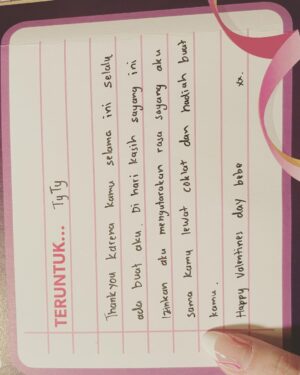 TERUNTUK... TyTy
Thankyou karena kamu selama ini selalu
ada buat aku. Di hari kasih sayang ini
Izinkan aku mengutarakan rasa sayang aku
sama kamu lewat coklat dan hadiah buat
kamu.
Happy Valentines day bebe xx.